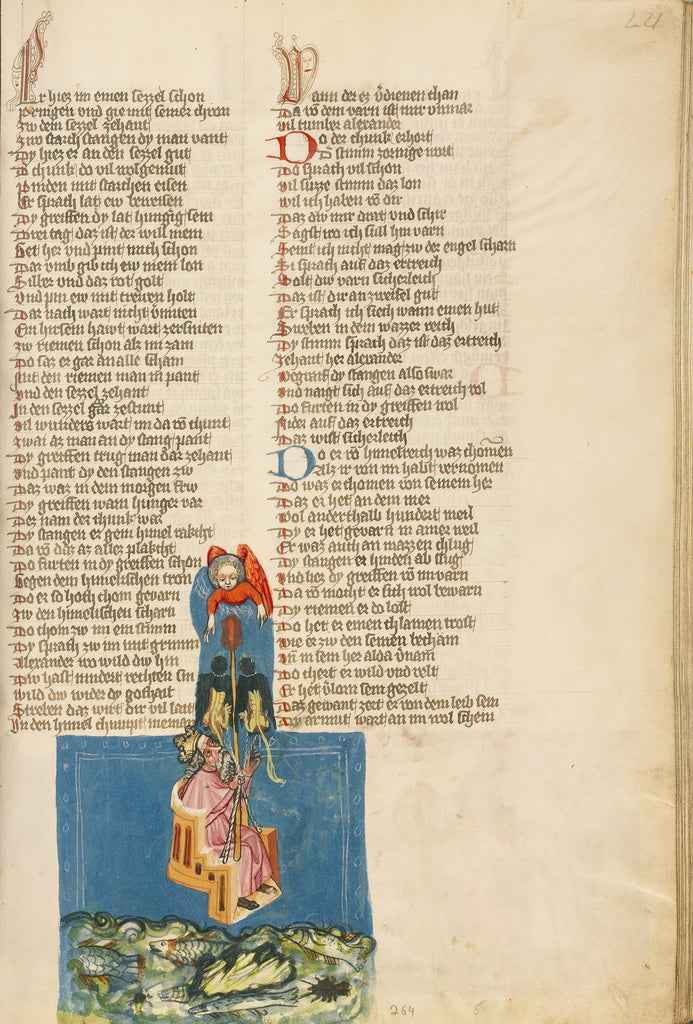 Er hiez im einen sezzel schon
Pringen vnd gie mit seiner chron
Zw dem sezzel zehant
Zwo starch stangen dy man vant
Dy hiez er an den sezzel gut
D chunk do vil wolgemut
Pinden mit starchen eisen
Er sprach lat ew beweisen
Dy greiffen dy lat hungig sein
Drei tag daz ist der will mein
Get her vnd pint mich schon
Dar vmb gib ich ew mein lon
Silber vnd daz rot golt
Vnd pin ew mit trewen holt
Dar nach wart nicht vmiten
Ein hirsein hawt wart zersniten
Zw riemen schon als im zam
Do saz er gar an alle scham
Mit den riemen man in pant
Vnd den sezzel zehant
In den sezzel gar zestunt
Vil wunders wart im da von chunt
Zwai az man an dy stang pant
Dy greiffen trug man dar zehant
Vnd pant dy den stangen zw
Daz waz in dem morgen frw
Dy greiffen warn hunger var
Der nam der chunk war
Dy stangen er gein himel rakcht
Da von diz az allez plakcht
Do furten in dy greiffen schon
Gegen dem himelischen tron
Do er so hoch chom gevarn
Zw den himelischen scharn
Do chom zw im ein stimm
Dy sprach zw im mit grimm
Alexander wo wild dw hin
Dw hast nindert rechten sin
Wild dw wider dy gothait
Streben daz wirt dir vil lait
In den himel chumpt nieman
Wann der ez verdienen chan
Da von dein varn ist mir vnmar
Vil tumber alexander
Do der chunk erhort
Di stimm zornige wort
Do sprach vil schon
Vil suzze stimm daz lon
Wil ich haben von dir
Daz dw mir drat vnd schir
Sagst wo ich sull hin varn
Seint ich nicht mag zw der engel scharn
Si sprach auf daz ertreich
Solt dw varn sicherleich
Daz ist dir an zweifel gut
Er sprach ich siech wann einen hut
Sweben in dem wazzer reich
Dy stimm sprach daz ist daz ertreich
Zehant her alexander
Begraif dy stangen also swar
Vnd naigt sich auf daz ertreich wol
Do furten in dy greiffen wol
Nider auf daz ertreich
Daz wist sicherleich
Do er von himelreich waz chomen
Als ir von im habt vernomen
Do waz er chomen von seinem her
Daz er het an dem mer
Wol anderthalb hundert meil
Dy er het gevarn in ainer weil
Er waz auch an mazzen chlug
Dy stangen er hinden ab slug
Vnd hez dy greiffen von im varn
Da von mocht er sich wol bewarn
Dy riemen er do lost
Do het er einen chlainen trost
Wie er zw den seinen becham
Vnd in sein her alda vernam
Do chert er wild vnd velt
Er het verlorn sein gezelt
Daz gewant zert er von dem leib sein
Dy armut wart an im wol schein
264